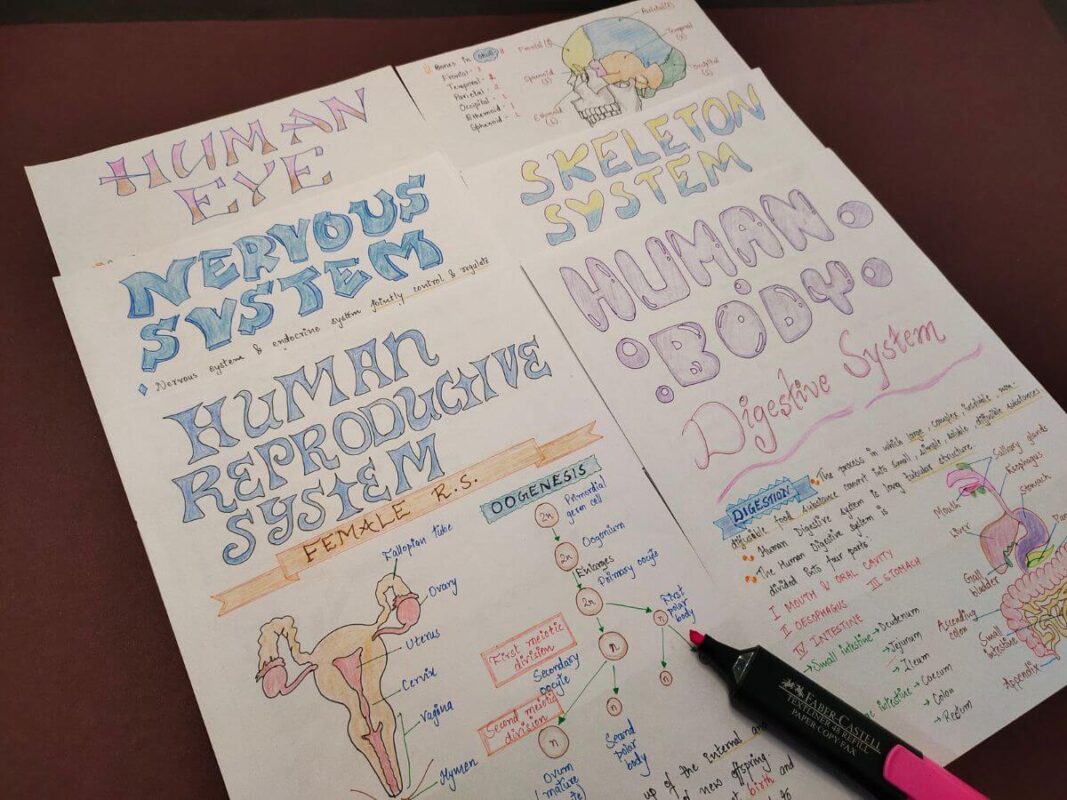 HUMAN
EYE
Bones in Skull
Frontal - 1
Temporal - 2
Parietal - 2
Occipital - 1
Ethemoid - 1
Sphenoid - 1
Frontal
Sphenoid
Ethmoid
Parietal
Temporal
Occipital
SKELETON
SYSTEM
NERVOUS
SYSTEM
Nervous system & endocrine system jointly control & regulate
HUMAN
REPRODUCTIVE
SYSTEM
FEMALE R.S.
Fallopian tube
Ovary
Uterus
Cervix
Vagina
Hymen
OOGENESIS
2n
Primordial
germ cell
2n
Oogenium
Enlarges
Primary oocyte
2n
First
polar
body
n
First meiotic
division
n
Secondary
oocyte
n
Second meiotic
division
n
n
Second
polar
body
Ovum
(mature
up of the internal and
new offspring
birth and
HUMAN
BODY
Digestive System
DIGESTION
The process in which large, complex, insoluble, non-
digusible food substance convert into small, simple, soluble, digusible substances
Human Digestive system is long tubular structure
The Human Digestive system is
divided into four parts
I MOUTH & ORAL CAVITY
II OESOPHAGUS III STOMACH
IV INTESTINE
Small intestine → Deudenum
→ Jejunum
→ Ileum
intestine → Caecum
→ Colon
→ Rectum
Salivary glands
Esophagus
Stomach
Mouth
Liver
Gall
bladder
Ascending
colon
Small
intestine
Appendix
FABER-CASTELL
TEXTLINER 48 REFILL
PAPER·COPY·FAX